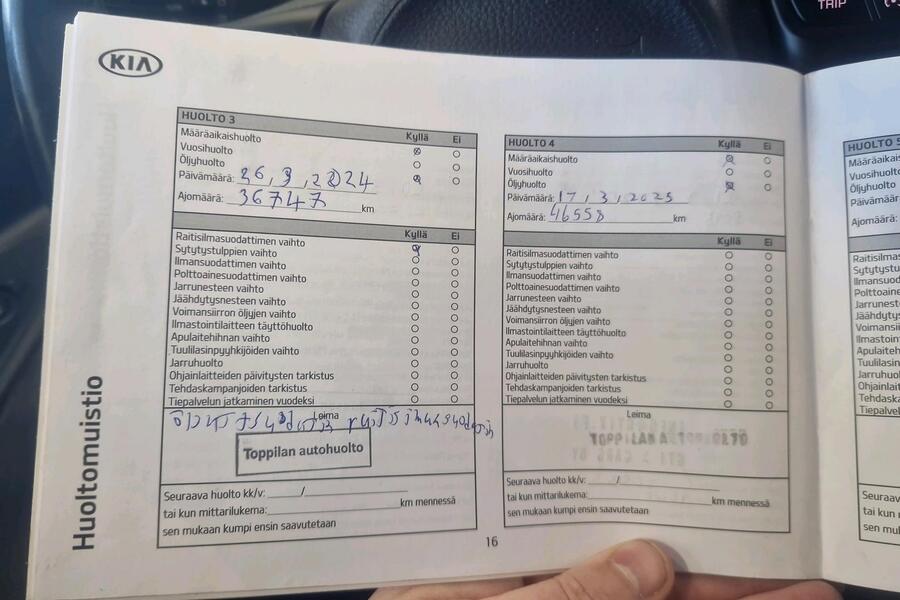 TRIP
KIA
Huoltomuistio
HUOLTO 3
Kyllä Ei
Määräaikaishuolto
Vuosihuolto
Öljyhuolto
Päivämäärä: 26,3,2024
Ajomäärä: 36747 km
Kyllä Ei
Raitisilmasuodattimen vaihto
Sytytystulppien vaihto
Ilmansuodattimen vaihto
Polttoainesuodattimen vaihto
Jarrunesteen vaihto
Jäähdytysnesteen vaihto
Voimansiirron öljyjen vaihto
Ilmastointilaitteen täyttöhuolto
Apulaitehihnan vaihto
Tuulilasinpyyhkijöiden vaihto
Jarruhuolto
Ohjainlaitteiden päivitysten tarkistus
Tehdaskampanjoiden tarkistus
Tiepalvelun jatkaminen vuodeksi
Leima
Toppilan autohuolto
Seuraava huolto kk/v: /
tai kun mittarilukema: km mennessä
sen mukaan kumpi ensin saavutetaan
HUOLTO 4
Kyllä Ei
Määräaikaishuolto
Vuosihuolto
Öljyhuolto
Päivämäärä: 17,3,2025
Ajomäärä: 46558 km
Kyllä Ei
Raitisilmasuodattimen vaihto
Sytytystulppien vaihto
Ilmansuodattimen vaihto
Polttoainesuodattimen vaihto
Jarrunesteen vaihto
Jäähdytysnesteen vaihto
Voimansiirron öljyjen vaihto
Ilmastointilaitteen täyttöhuolto
Apulaitehihnan vaihto
Tuulilasinpyyhkijöiden vaihto
Jarruhuolto
Ohjainlaitteiden päivitysten tarkistus
Tehdaskampanjoiden tarkistus
Tiepalvelun jatkaminen vuodeksi
Leima
TOPPILAN
Seuraava huolto kk/v: /
tai kun mittarilukema: km mennessä
sen mukaan kumpi ensin saavutetaan
16
HUOLTO 5